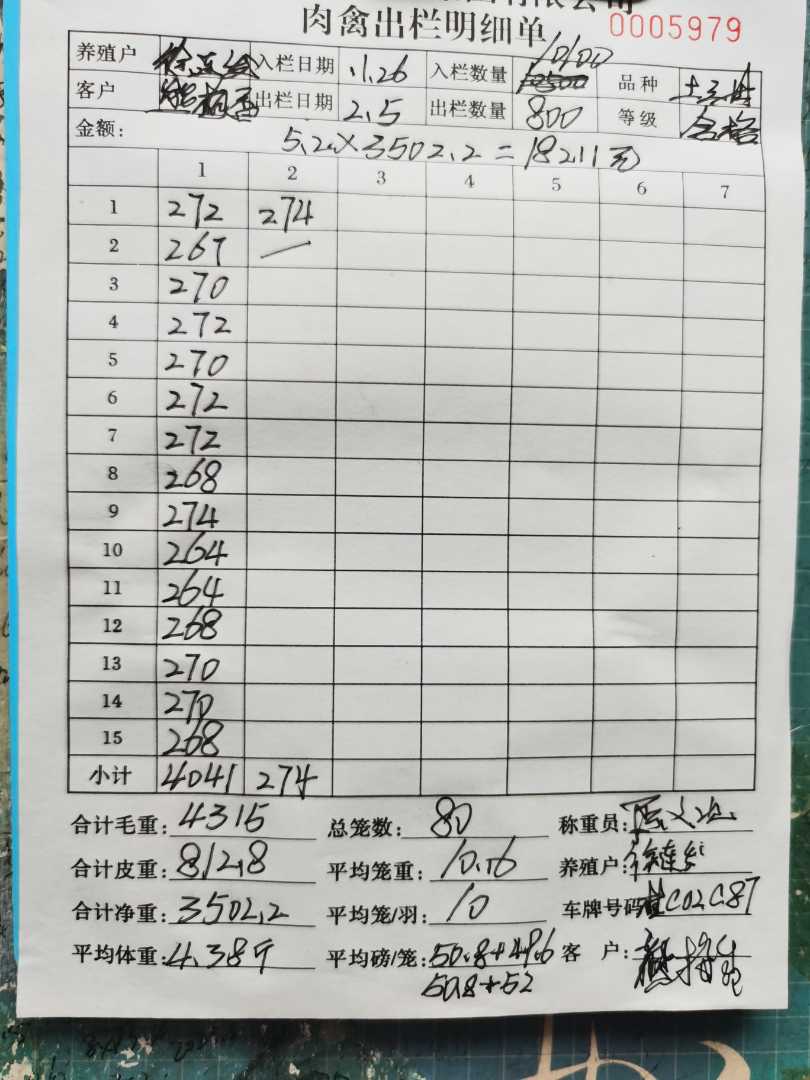 有限公司
肉禽出栏明细单 0005979
养殖户 入栏日期 11.26 入栏数量 10100 品种
客户 出栏日期 2.5 出栏数量 800 等级 合格
金额: 5.2×3502.2=18211元
1 2 3 4 5 6 7
1 272 274
2 267 —
3 270
4 272
5 270
6 272
7 272
8 268
9 274
10 264
11 264
12 268
13 270
14 270
15 268
小计 4041 274
合计毛重: 4315 总笼数: 80 称重员:
合计皮重: 812.8 平均笼重: 10.16 养殖户:
合计净重: 3502.2 平均笼/羽: 10 车牌号码 C02C87
平均体重: 4.38斤 平均磅/笼: 50.8+49.6 客 户:
50.8+52